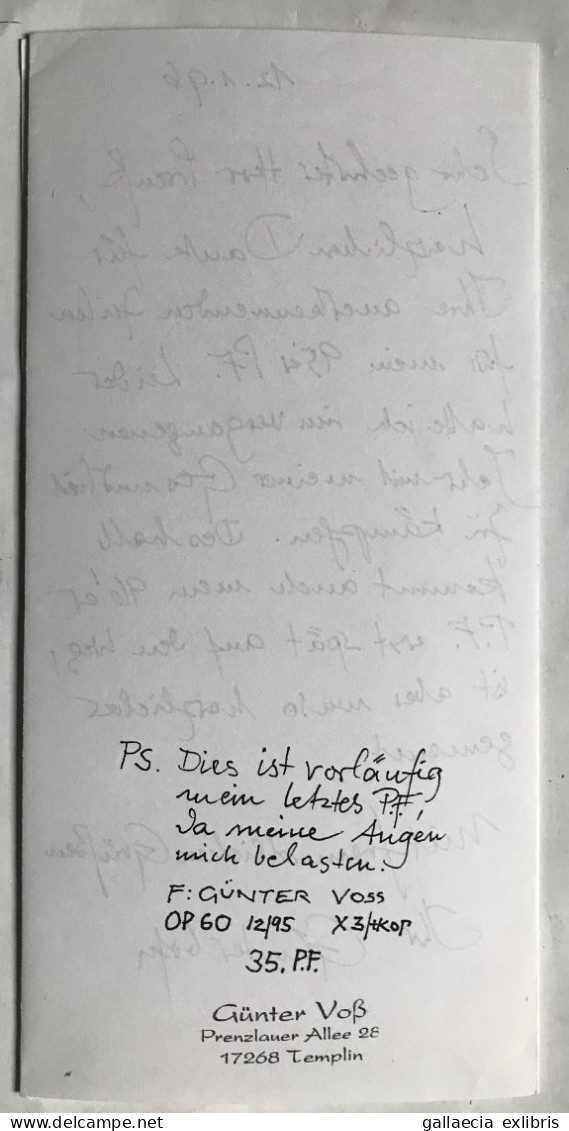 PS. Dies ist vorläufig
mein letztes P.F.,
da meine Augen
mich belasten.
F: GÜNTER VOSS
OP 60 12/95 X3/
35. P.F.
Günter Voß
Prenzlauer Allee 28
17268 Templin
12.1.96
Sehr geehrter Herr
herzlichen Dank für
Ihre anerkennenden Zeilen
mein 95er P.F. Leider
hatte ich im vergangenen
Jahr mit meiner Gesundheit
zu kämpfen. Deshalb
kommt auch mein 96'er
P.F. erst spät auf den Weg,
ist aber umso herzlicher
gemeint.
Grüßen
Ihr
delcampe.net
gallaecia exlibris